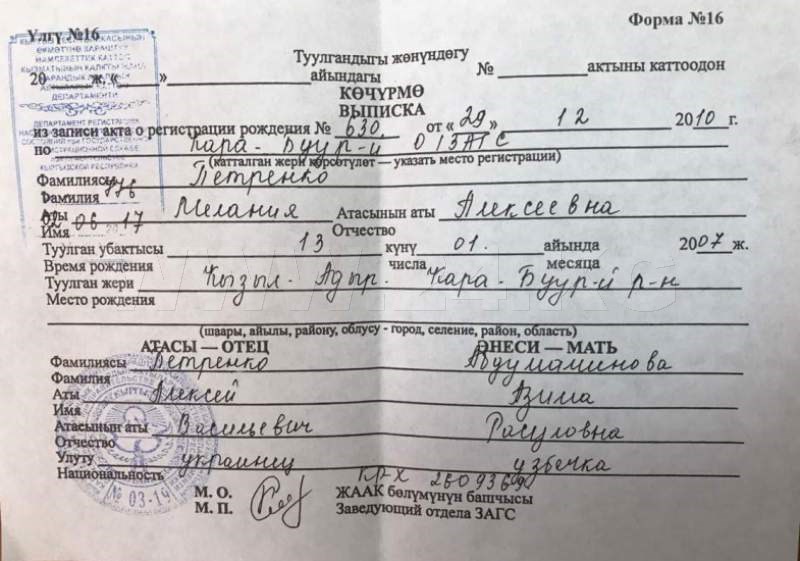 Үлгү №16
Форма №16
КЫРГЫЗ РЕСПУБЛИКАСЫНЫН
ӨКМӨТҮНӨ КАРАШТУУ
МАМЛЕКЕТТИК КАТТОО
ДЕПАРТАМЕНТИ
ДЕПАРТАМЕНТ РЕГИСТРАЦИИ
КЫРГЫЗСКОЙ РЕСПУБЛИКИ
Туулгандыгы жөнүндөгү
20 ж. « » айындагы № актыны каттоодон
КӨЧҮРМӨ
ВЫПИСКА
из записи акта о регистрации рождения № 630 от « 29 » 12 2010 г.
по Кара-Буур-й ОЗАГС
(катталган жери көрсөтүлөт — указать место регистрации)
Фамилиясы Петренко
Фамилия
Аты Мелания Атасынын аты Алексеевна
06 17
Имя Отчество
Туулган убактысы 13 күнү 01. айында 2007 ж.
Время рождения числа месяца
Туулган жери Кызыл-Адыр. Кара-Буур-й р-н
Место рождения
(шаары, айылы, району, облусу - город, селение, район, область)
АТАСЫ — ОТЕЦ ӘНЕСИ — МАТЬ
Фамилиясы Петренко
Фамилия
Аты Алексей Азима
Имя
Атасынын аты Васильевич Расуловна
Отчество
Улуту украинец узбечка
Национальность КР-Х
№ 03-19
М. О. ЖААК бөлүмүнүн башчысы
М. П. Заведующий отдела ЗАГС